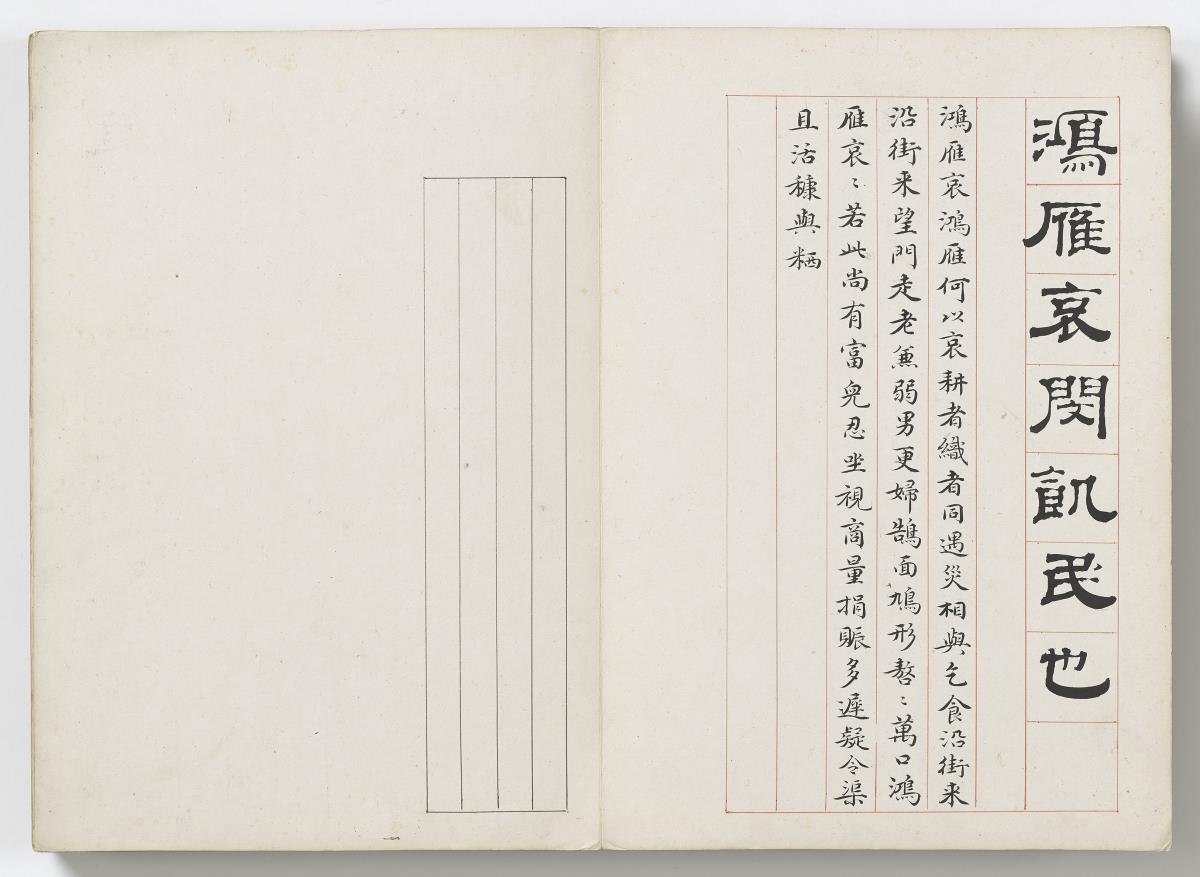 鴻雁哀閔飢民也
鴻雁哀鴻雁何以哀耕者織者同遇災相與乞食沿街来
沿街来望門走老兼弱男更婦鵠面鳩形嗸〻萬口鴻
雁哀〻若此尚有富兒忍坐視商量捐賑多遲疑令渠
且活穅與粞